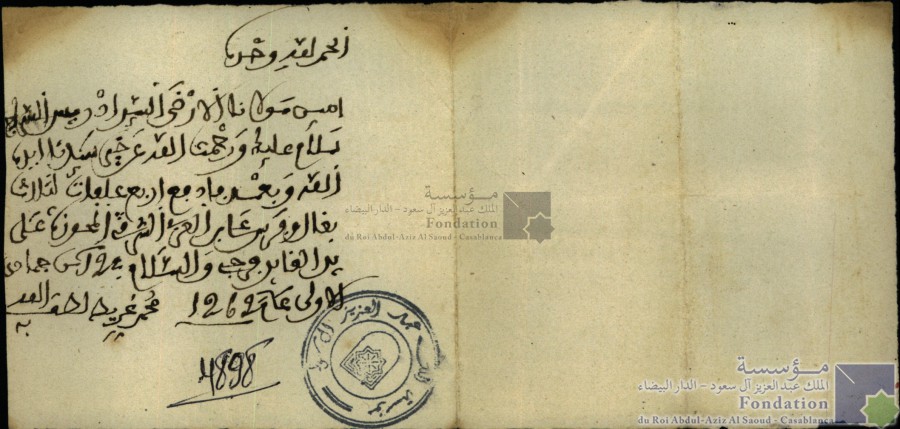 الحمد لله وحده
امين مولانا الارضى السيد ادريس السراج
سلام عليك ورحمت الله عن خير سيدنا ايده
الله وبعد فادفع اربع علفات لثلاث
بغال وفرس عابر العزيز الشريف المحوزين على
يد القايد فرجي والسلام في جمادى
الاولى عام 1262 محمد غريط لطف الله
به
4898
مؤسسة
الملك عبد العزيز آل سعود - الدار البيضاء
Fondation
du Roi Abdul-Aziz Al Saoud - Casablanca
عبد العزيز آل
مؤسسة
مؤسسة
الملك عبد العزيز آل سعود - الدار البيضاء
Fondation
du Roi Abdul-Aziz Al Saoud - Casablanca